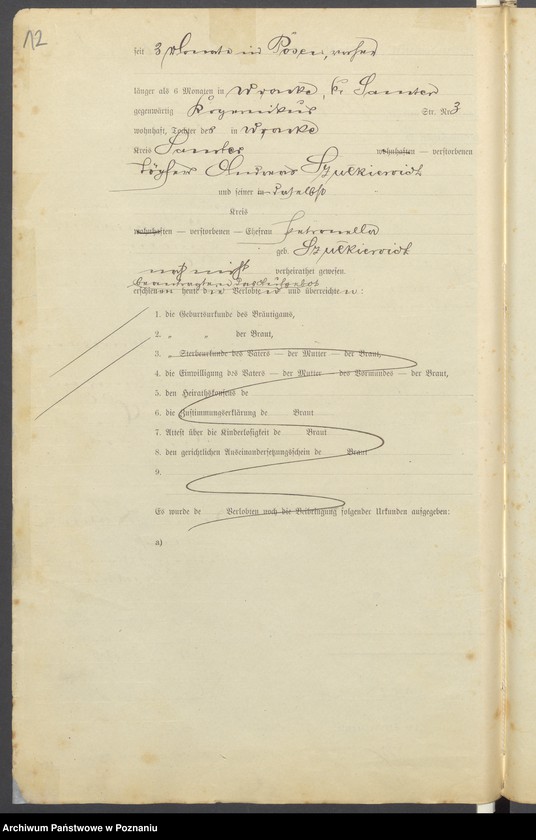 12
seit 3 Monate in Posen, vorher
länger als 6 Monaten in Wronke, Kr. Samter
gegenwärtig Str. Nr. 3
wohnhaft, Tochter des in Wronke
Kreis Samter wohnhaften — verstorbenen
Töpfer Andreas Szulkiewicz
und seiner in daselbst
Kreis
wohnhaften — verstorbenen — Ehefrau Petronella
geb. Szulkiewicz
noch nicht verheirathet gewesen.
beantragten das Aufgebot
erschienen heute die Verlobten und überreichten:
1. die Geburtsurkunde des Bräutigams,
2. „ „ der Braut,
3. „ Sterbeurkunde des Vaters — der Mutter — der Braut,
4. die Einwilligung des Vaters — der Mutter — des Vormundes — der Braut,
5. den Heirathskonsens de
6. die Zustimmungserklärung de Braut
7. Attest über die Kinderlosigkeit de Braut
8. den gerichtlichen Auseinandersetzungsschein de Braut
9.
Es wurde de Verlobten noch die Beibringung folgender Urkunden aufgegeben:
a)
Archiwum Państwowe w Poznaniu